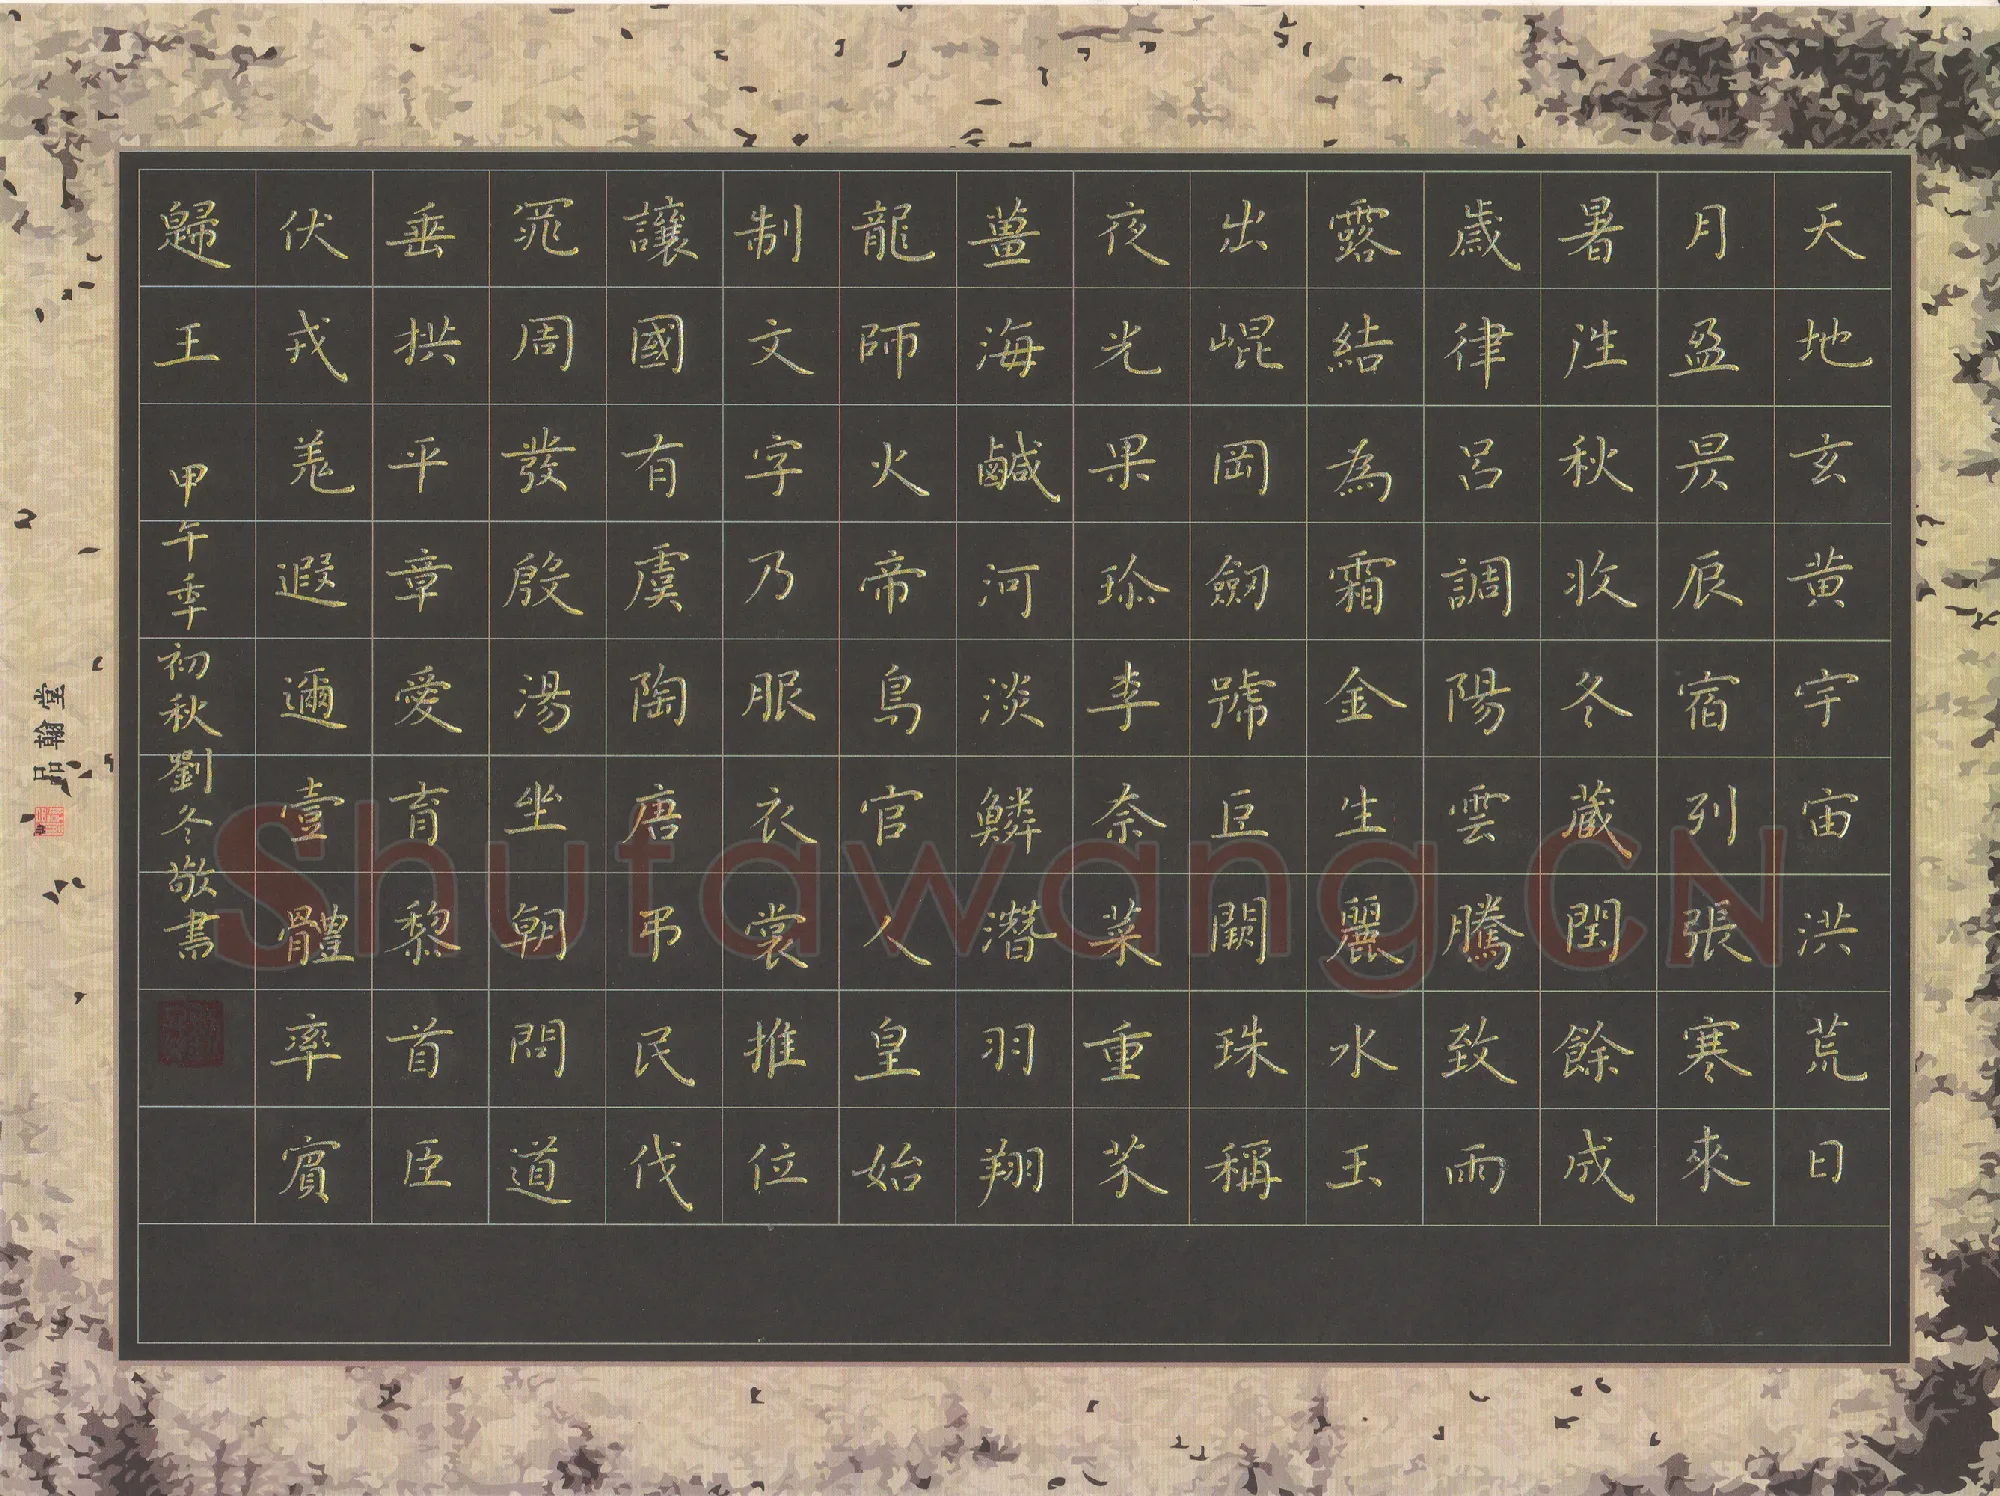 天地玄黄宇宙洪荒日
月盈昃辰宿列張寒來
暑往秋收冬藏閏餘成
歲律呂調陽雲騰致雨
露結為霜金生麗水玉
出崐岡劒號巨闕珠稱
夜光果珎李奈菜重芥
薑海鹹河淡鱗潛羽翔
龍師火帝鳥官人皇始
制文字乃服衣裳推位
讓國有虞陶唐弔民伐
罪周發殷湯坐朝問道
垂拱平章愛育黎首臣
伏戎羌遐邇壹體率賓
歸王
甲午季初秋劉冬敬書
品翰堂
Shufawang.CN